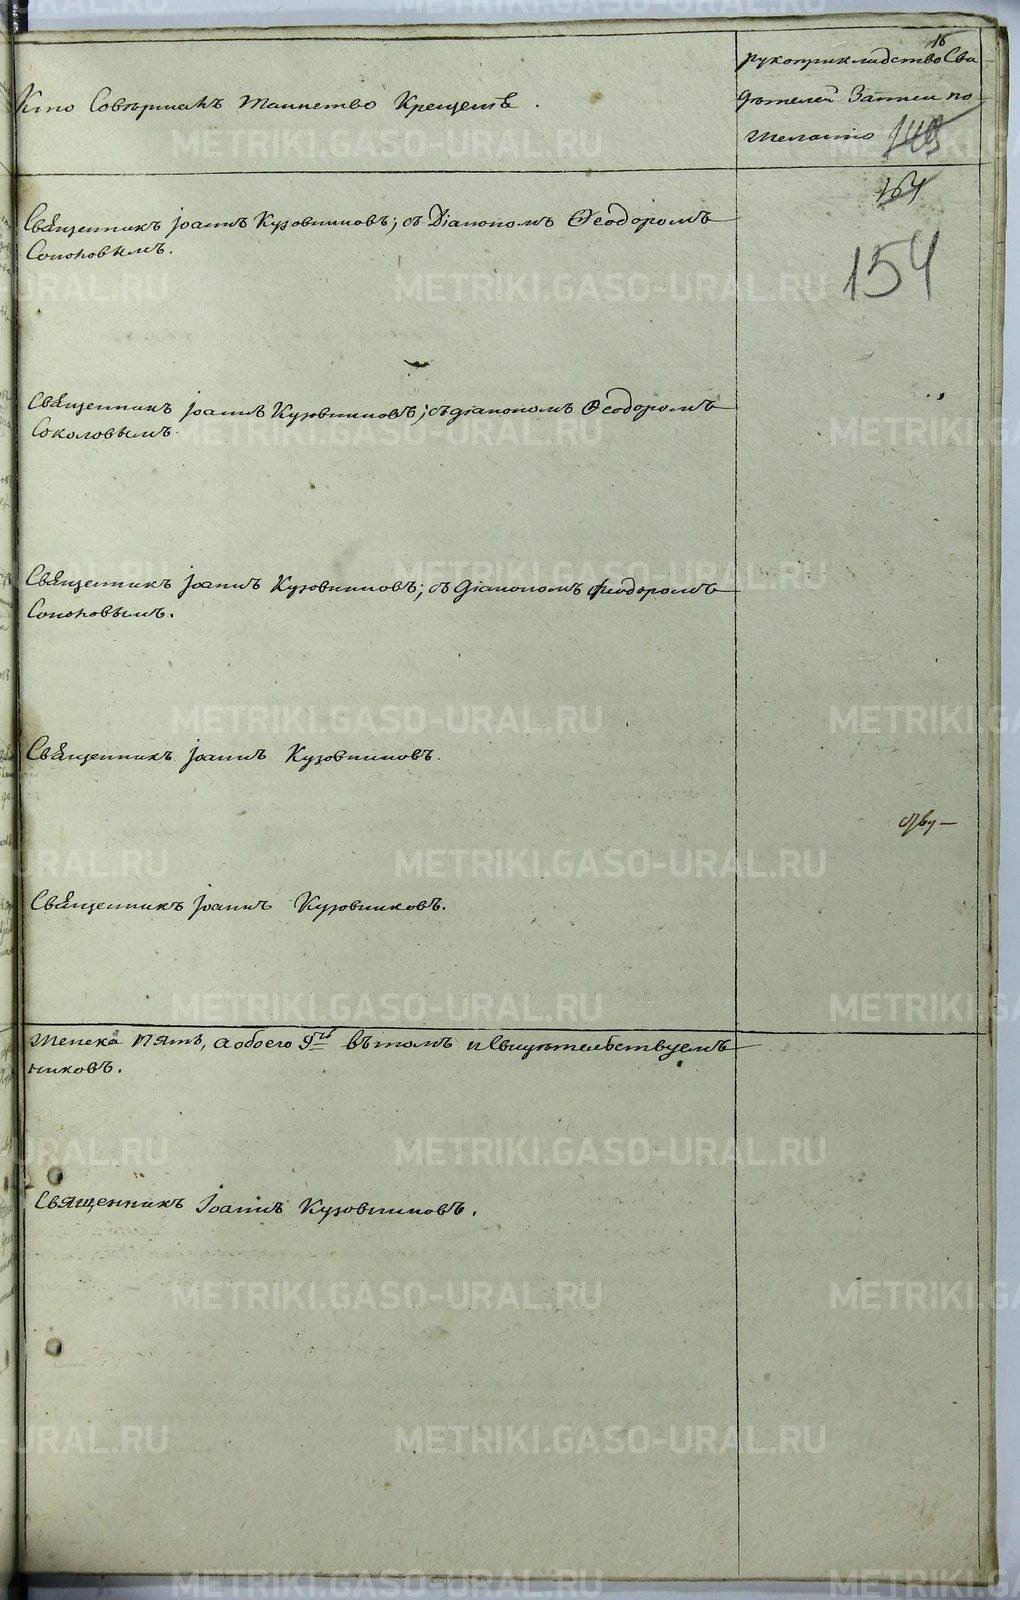 16
Кто Совершалъ Таинство Крещенія.
рукоприкладство Сви
дѣтелей Записи по
желанію 149
154
154
Священникъ Іоаннъ Кузовниковъ; съ Діакономъ Ѳеодоромъ
Соколовымъ.
Священникъ Іоаннъ Кузовниковъ; съ діакономъ Ѳеодоромъ
Соколовымъ.
Священникъ Іоаннъ Кузовниковъ; съ діакономъ Феодоромъ
Соколовымъ.
Священникъ Іоаннъ Кузовниковъ.
Священникъ Іоаннъ Кузовниковъ.
женска пять, а обоего 9ть въ томъ и Свидѣтельствуемъ
никовъ.
Священникъ Іоаннъ Кузовниковъ.
METRIKI.GASO-URAL.RU